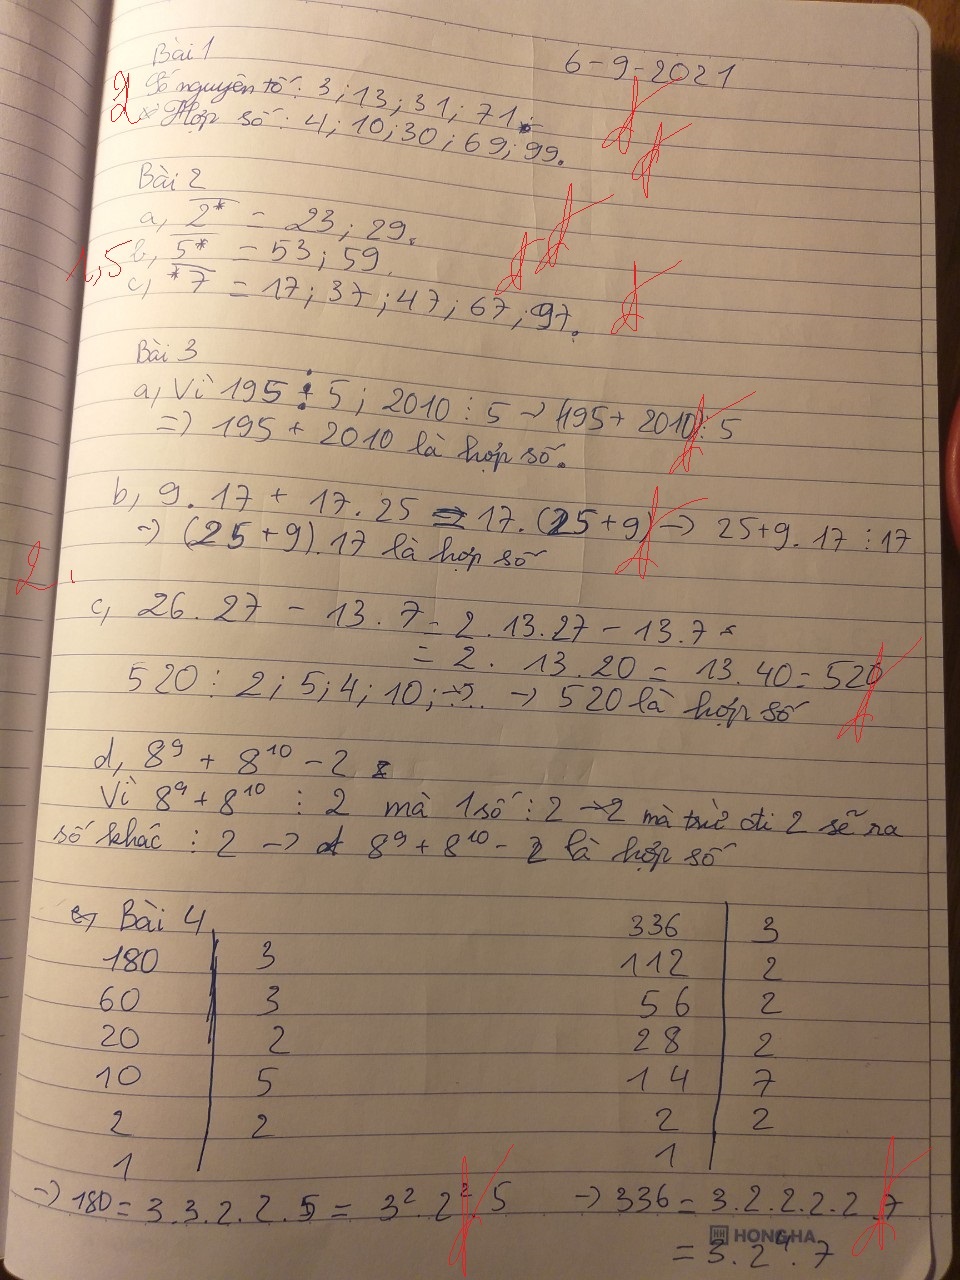 6-9-2021
Bài 1
2
Số nguyên tố: 3; 13; 31; 71.
Hợp số: 4; 10; 30; 69; 99.
Bài 2
a, 2* = 23; 29.
1,5
b, 5* = 53; 59.
c, *7 = 17; 37; 47; 67; 97.
Bài 3
a, Vì 195 ⋮ 5; 2010 ⋮ 5 → (195 + 2010) ⋮ 5
=> 195 + 2010 là hợp số.
b, 9 . 17 + 17 . 25 = 17. (25 + 9) → 25+9 . 17 ⋮ 17
→ (25 + 9) . 17 là hợp số
2
c, 26 . 27 - 13 . 7 = 2 . 13 . 27 - 13 . 7
= 2 . 13 . 20 = 13 . 40 = 520
520 ⋮ 2; 5; 4; 10; ... → 520 là hợp số
d, 8⁹ + 8¹⁰ - 2
Vì 8⁹ + 8¹⁰ ⋮ 2 mà 1 số ⋮ 2 mà trừ đi 2 sẽ ra
số khác ⋮ 2 → 8⁹ + 8¹⁰ - 2 là hợp số
Bài 4
180 | 3
60 | 3
20 | 2
10 | 5
2 | 2
1
→ 180 = 3.3.2.2.5 = 3² . 2² . 5
336 | 3
112 | 2
56 | 2
28 | 2
14 | 7
2 | 2
1
→ 336 = 3.2.2.2.2.7
= 3 . 2⁴ . 7
HONG HA